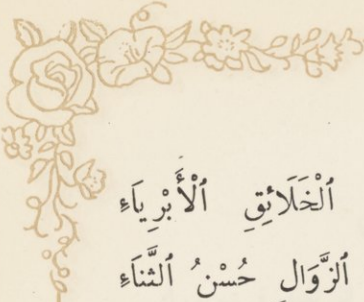 ٱلْخَلَائِقِ ٱلْأَبْرِيَاءِ
ٱلزَّوَالِ حُسْنُ ٱلثَّنَاءِ